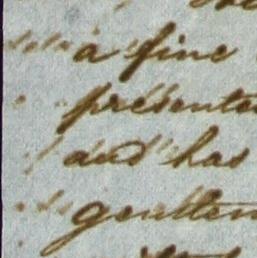 a fine
presente
and has
gentlem